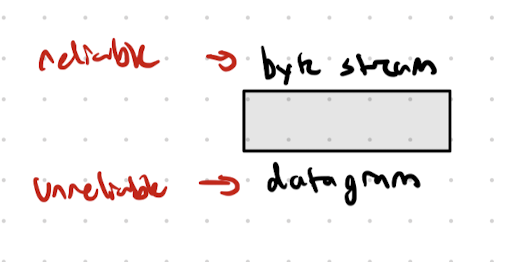 reliable → byte stream
unreliable → datagram